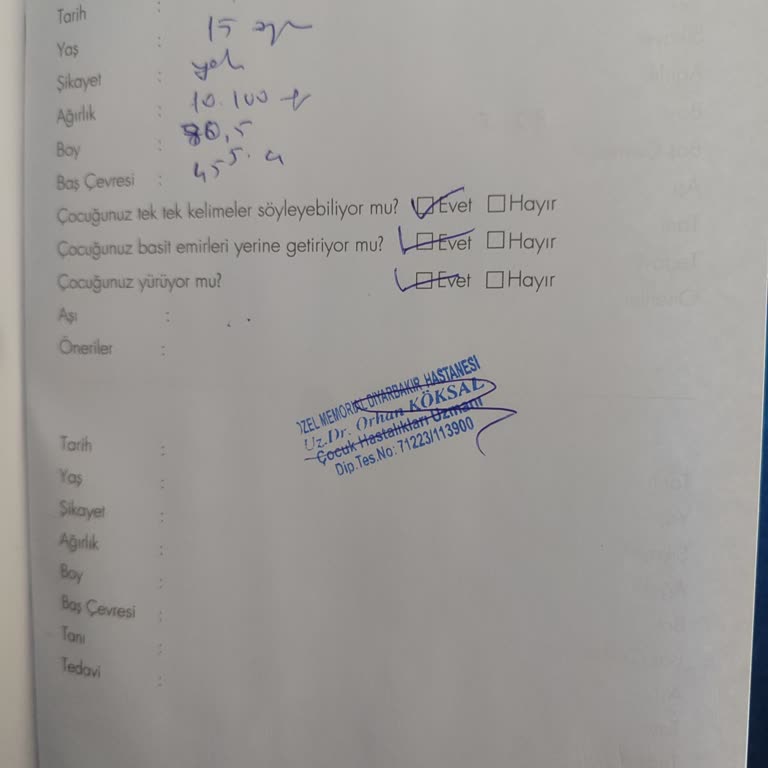 Tarih :
Yaş : 15 ay
Şikayet : yok
Ağırlık : 10.100 g
Boy : 80,5
Baş Çevresi : 45 5.
Çocuğunuz tek tek kelimeler söyleyebiliyor mu? Evet Hayır
Çocuğunuz basit emirleri yerine getiriyor mu? Evet Hayır
Çocuğunuz yürüyor mu? Evet Hayır
Aşı :
Öneriler :
ÖZEL MEMORIAL DİYARBAKIR HASTANESİ
Uz.Dr. Orhan KÖKSAL
Çocuk Hastalıkları Uzmanı
Dip.Tes.No: 71223/113900
Tarih :
Yaş :
Şikayet :
Ağırlık :
Boy :
Baş Çevresi :
Tanı :
Tedavi :